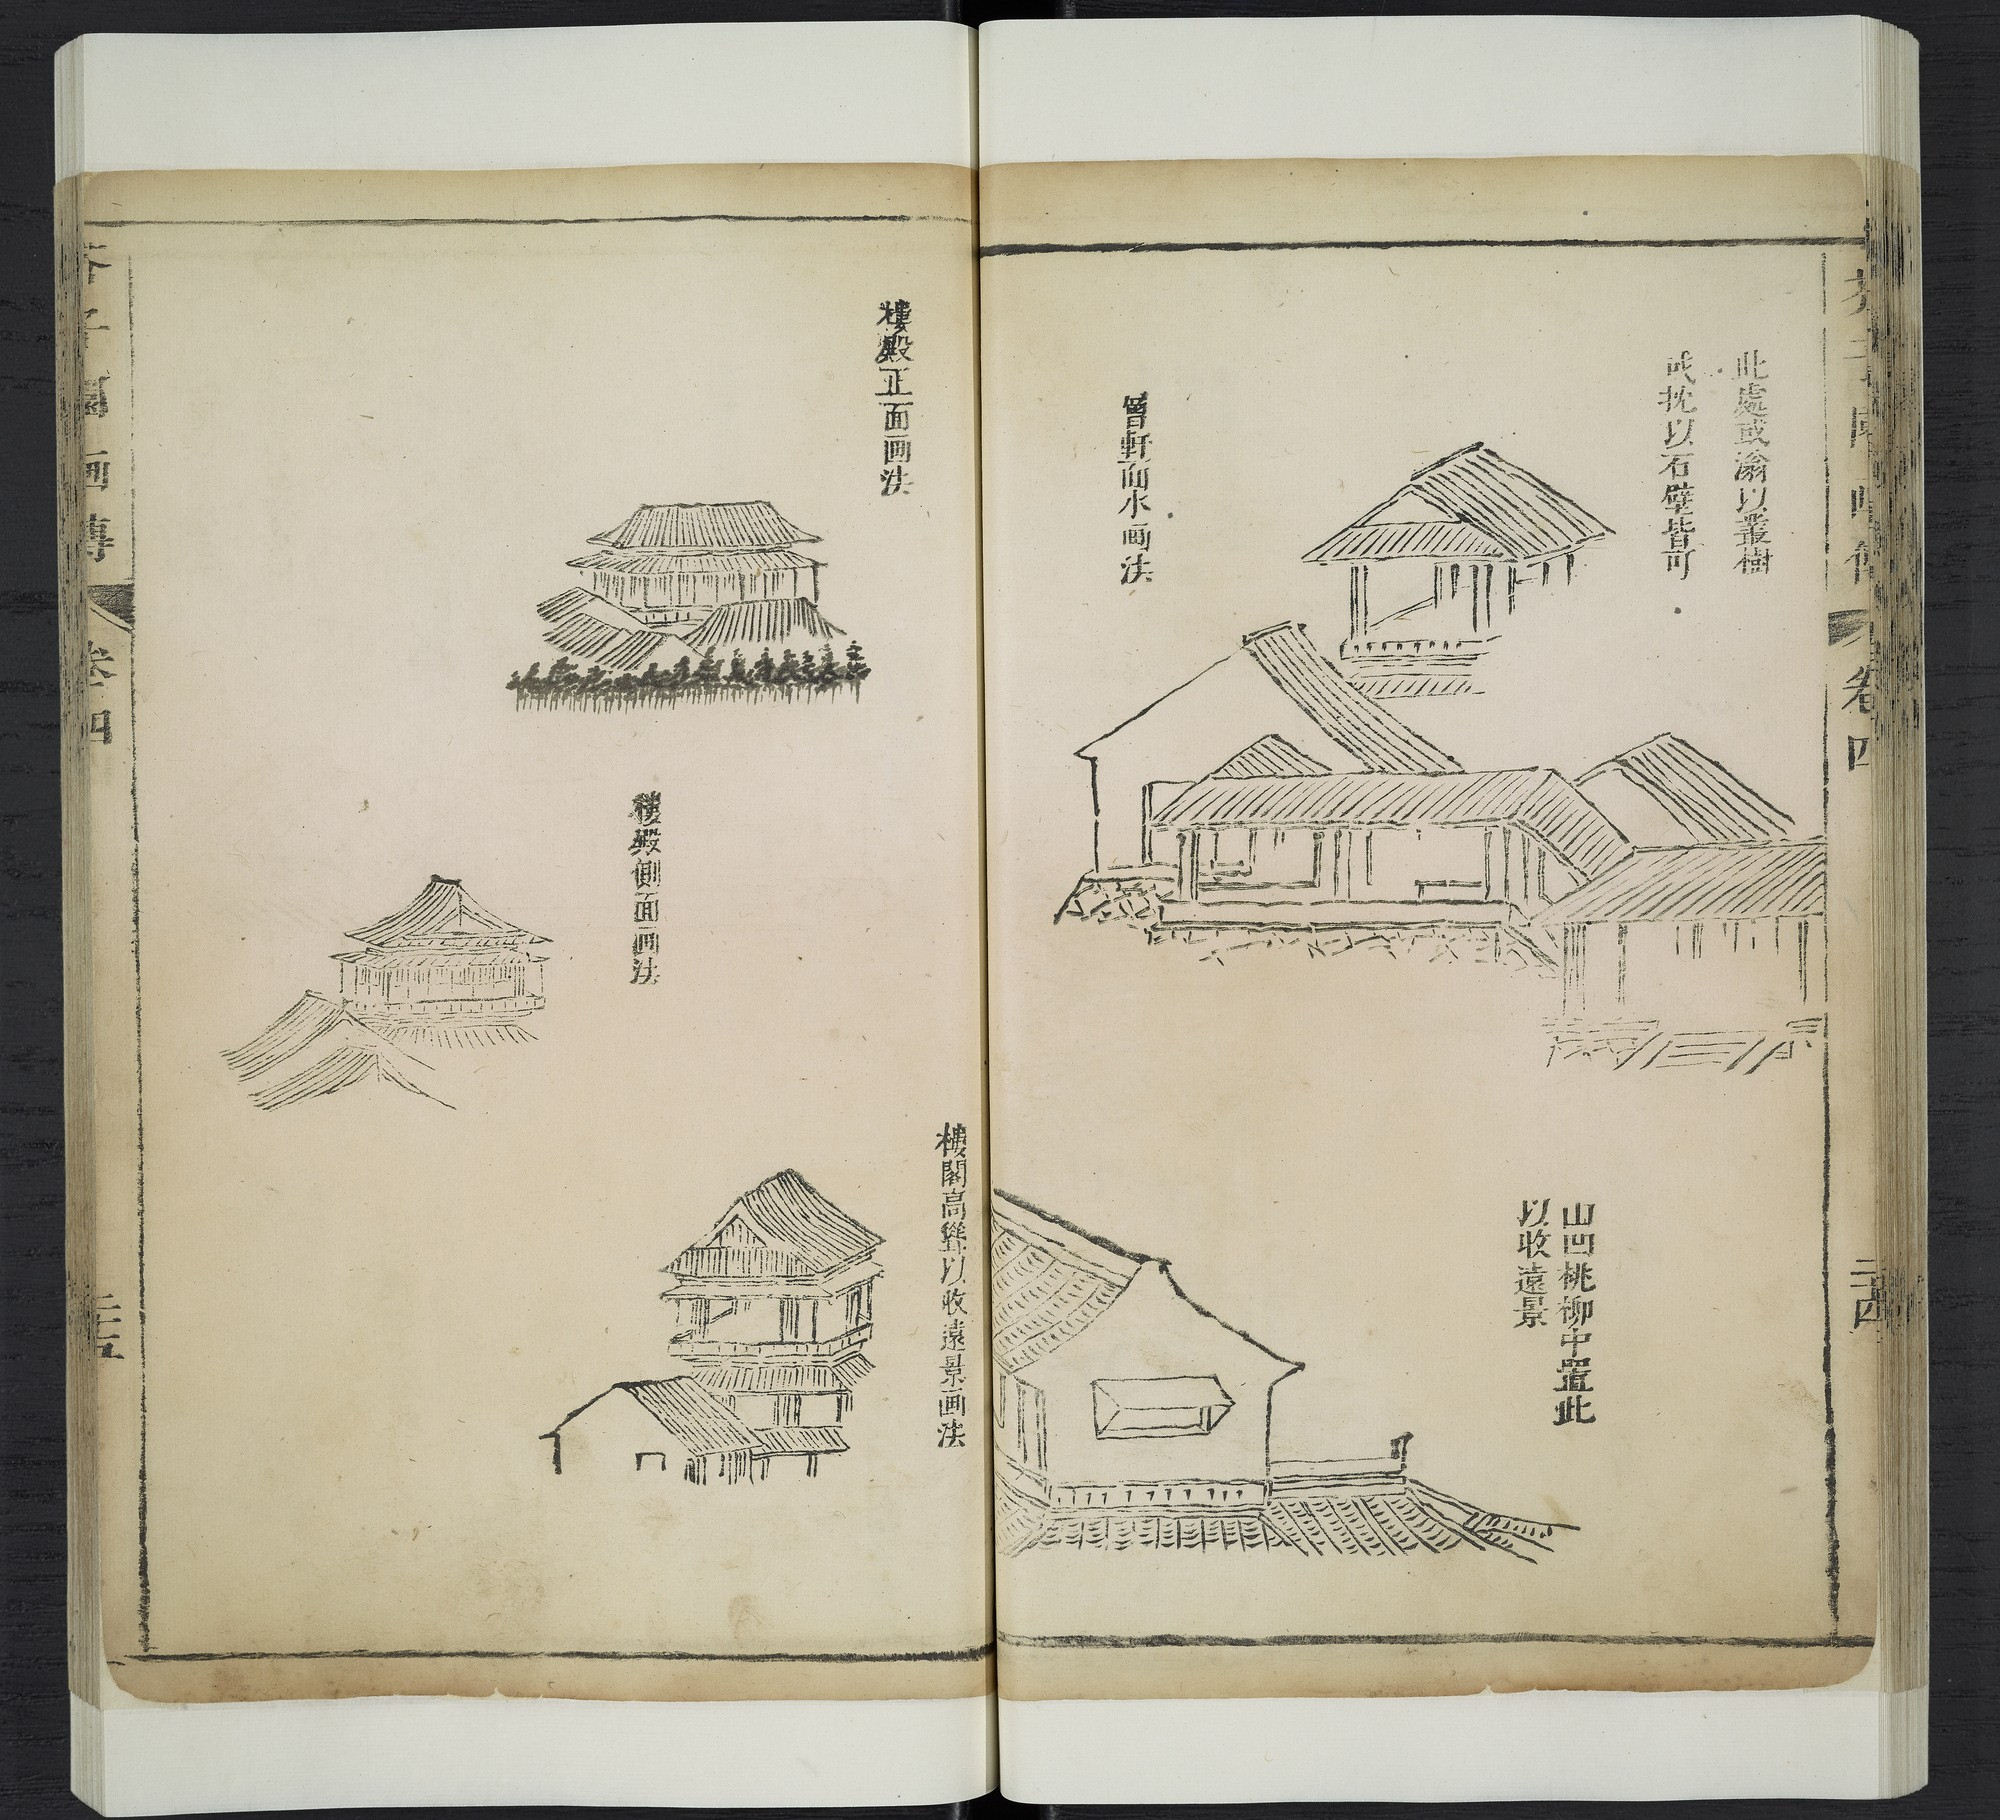 卷四
此處或滃以叢樹
或枕以石壁皆可
曾軒面水画法
山凹桃柳中置此
以收遠景
樓殿正面画法
樓殿側面画法
樓閣高聳以收遠景画法
園画傳
卷四
二十五